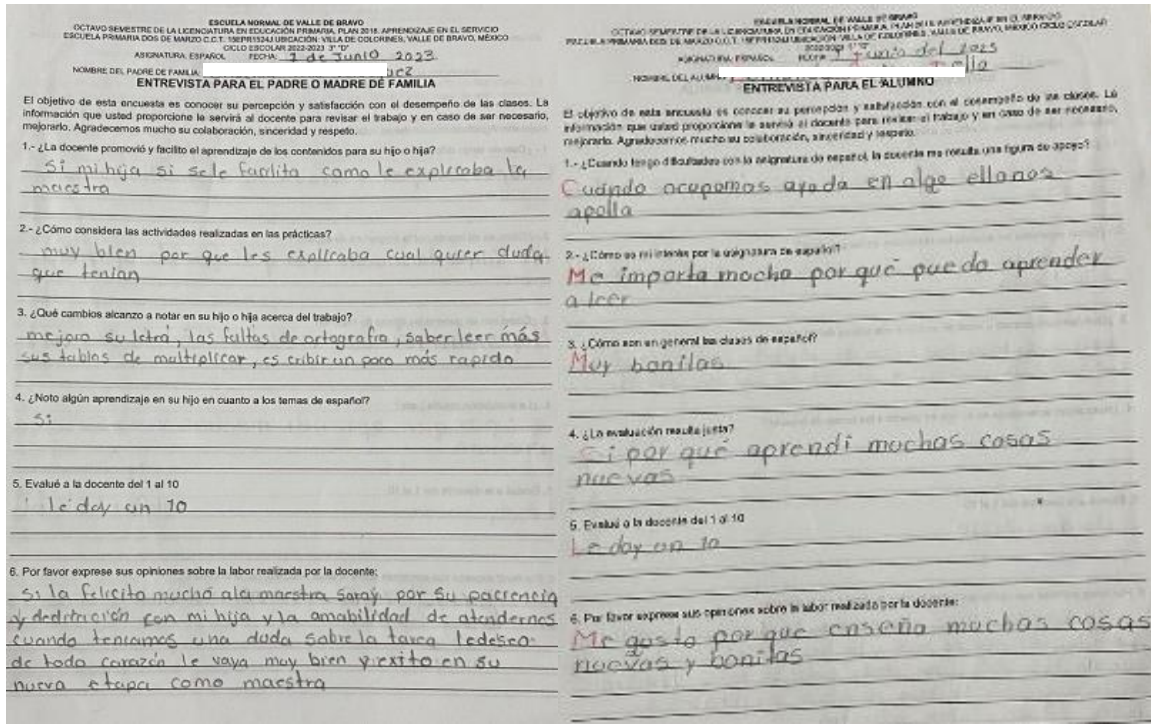 ESCUELA NORMAL DE VALLE DE BRAVO
OCTAVO SEMESTRE DE LA LICENCIATURA EN EDUCACIÓN PRIMARIA, PLAN 2018. APRENDIZAJE EN EL SERVICIO
ESCUELA PRIMARIA DOS DE MARZO C.C.T. 15EPR1524J UBICACIÓN: VILLA DE COLORINES, VALLE DE BRAVO, MÉXICO
CICLO ESCOLAR 2022-2023 3° "D"
ASIGNATURA: ESPAÑOL FECHA: 1 de Junio 2023
NOMBRE DEL PADRE DE FAMILIA:
ENTREVISTA PARA EL PADRE O MADRE DE FAMILIA
El objetivo de esta encuesta es conocer su percepción y satisfacción con el desempeño de las clases. La
información que usted proporcione le servirá al docente para revisar el trabajo y en caso de ser necesario,
mejorarlo. Agradecemos mucho su colaboración, sinceridad y respeto.
1.- ¿La docente promovió y facilito el aprendizaje de los contenidos para su hijo o hija?
Si mi hija si sele facilito como le explicaba la
maestra
2.- ¿Cómo considera las actividades realizadas en las prácticas?
muy bien por que les explicaba cual quier duda
que tenian
3. ¿Qué cambios alcanzo a notar en su hijo o hija acerca del trabajo?
mejoro su letra, las faltas de ortografia, saber leer más
sus tablas de multiplicar, es cribir un poco más rapido
4. ¿Noto algún aprendizaje en su hijo en cuanto a los temas de español?
Si
5. Evalué a la docente del 1 al 10
le doy un 10
6. Por favor exprese sus opiniones sobre la labor realizada por la docente:
Si la felicito mucho ala maestra Saray por su paciencia
y dedicación con mi hija y la amabilidad de atendernos
cuando teniamos una duda sobre la tarea ledeseo
de todo corazón le vaya muy bien y exito en su
nueva etapa como maestra
ESCUELA NORMAL DE VALLE DE BRAVO
ASIGNATURA: ESPAÑOL
NOMBRE DEL ALUMNO
ENTREVISTA PARA EL ALUMNO
El objetivo de esta encuesta es conocer su percepción y satisfacción con el desempeño de las clases. La
información que usted proporcione le servirá al docente para revisar el trabajo y en caso de ser necesario,
mejorarlo. Agradecemos mucho su colaboración, sinceridad y respeto.
1.- ¿Cuando tengo dificultades con la asignatura de español, la docente me resulta una figura de apoyo?
Cuándo ocupamos ayuda en algo ella nos
apolla
2.- ¿Cómo es mi interés por la asignatura de español?
Me importa mocho por qué puedo aprender
a leer
3. ¿Cómo son en general las clases de español?
Muy bonitas
4. ¿La evaluación resulta justa?
Si por qué aprendi muchas cosas
nuevas
5. Evalué a la docente del 1 al 10
Le doy un 10
6. Por favor exprese sus opiniones sobre la labor realizada por la docente:
Me gusto por que enseña muchas cosas
nuevas y bonitas